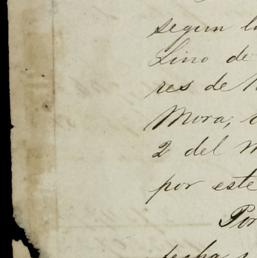 segun l
Lino de
res de
Mora,
2 del
por este
Por
fecha